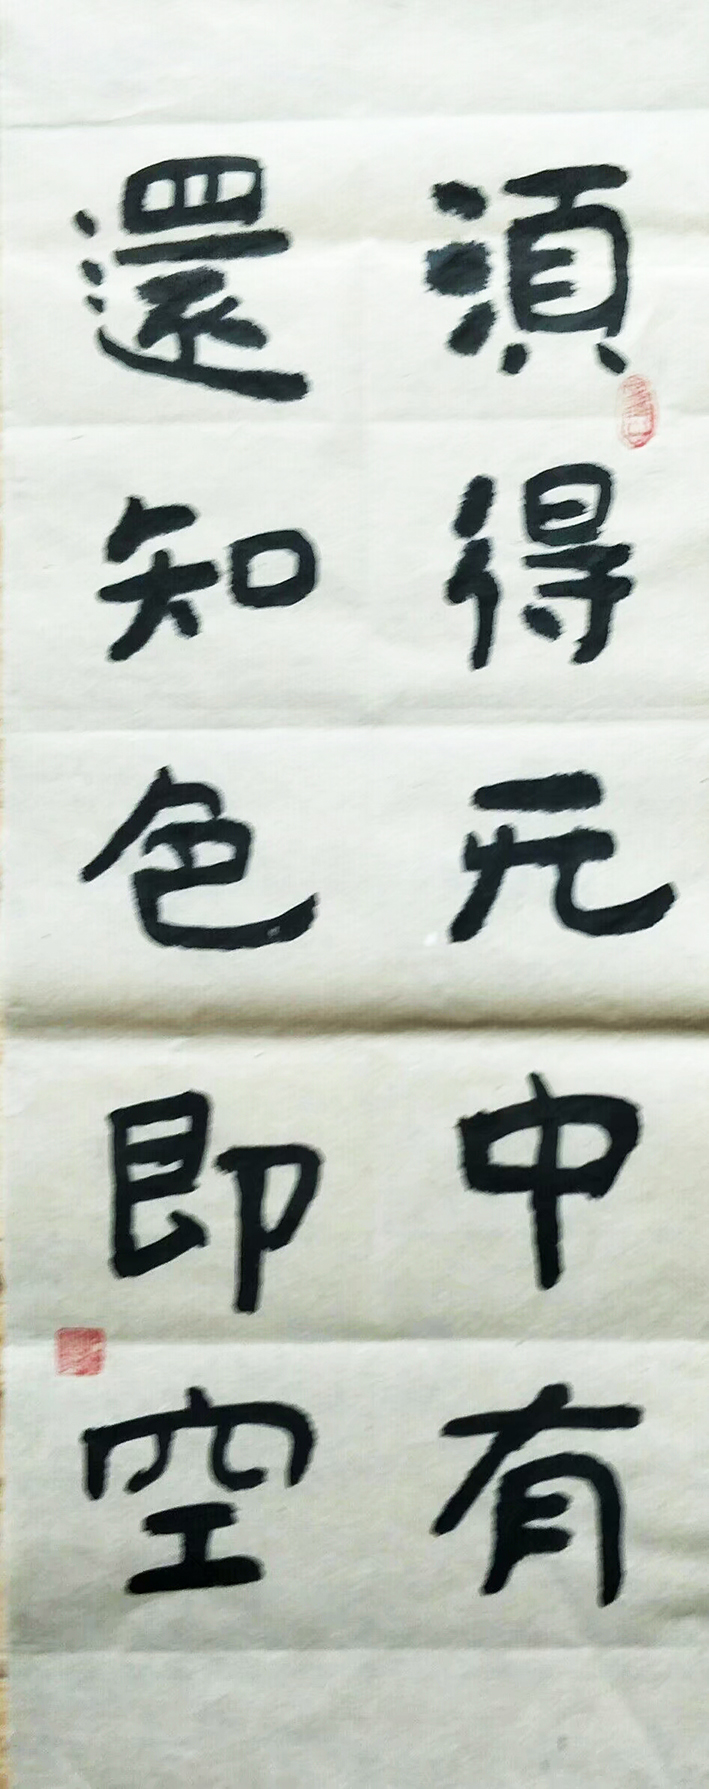 湏得无中有
還知色即空